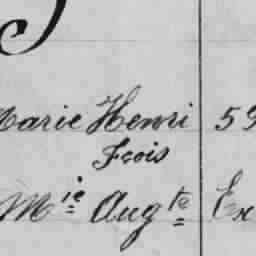 Marie Henri 59
Fcois
Mie Augte Ex